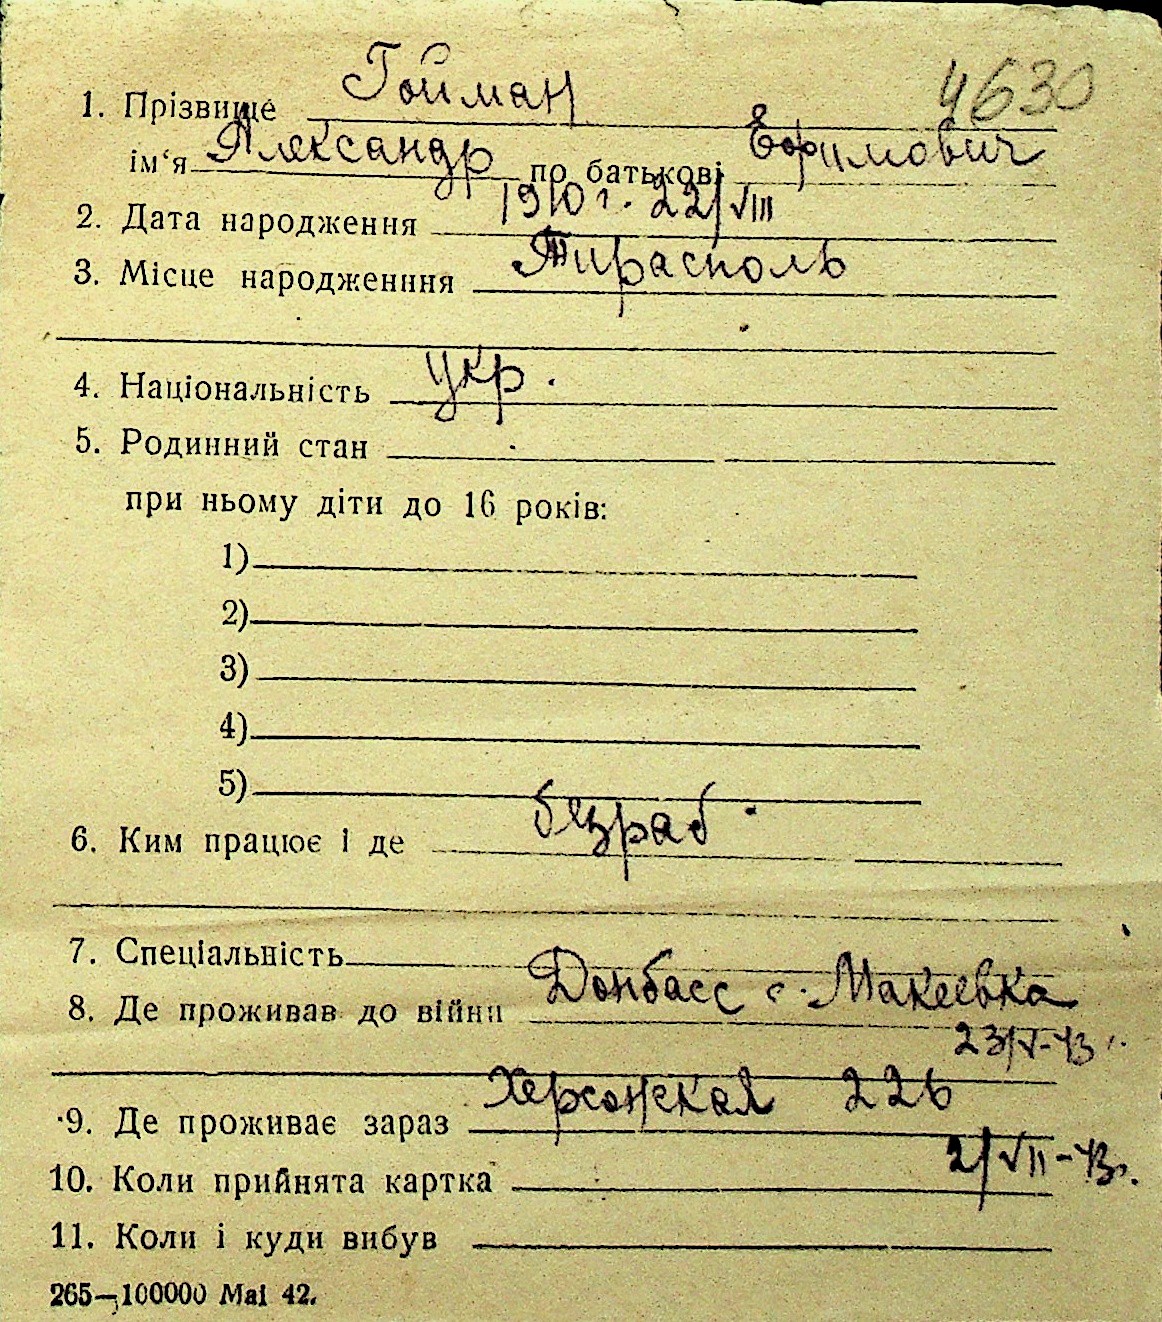 4630
1. Прізвище Гойман
ім‘я Александр по батькові Ефимович
2. Дата народження 1910 г. 22/VIII
3. Місце народженння Тирасполь
4. Національність укр.
5. Родинний стан
при ньому діти до 16 років:
1)
2)
3)
4)
5)
6. Ким працює і де безраб.
7. Спеціальність
8. Де проживав до війни Донбасс с. Макеевка
23/V-43 г.
9. Де проживає зараз Херсонская 22б
10. Коли прийнята картка 2/VII-43 г.
11. Коли і куди вибув
265—100000 Mai 42.